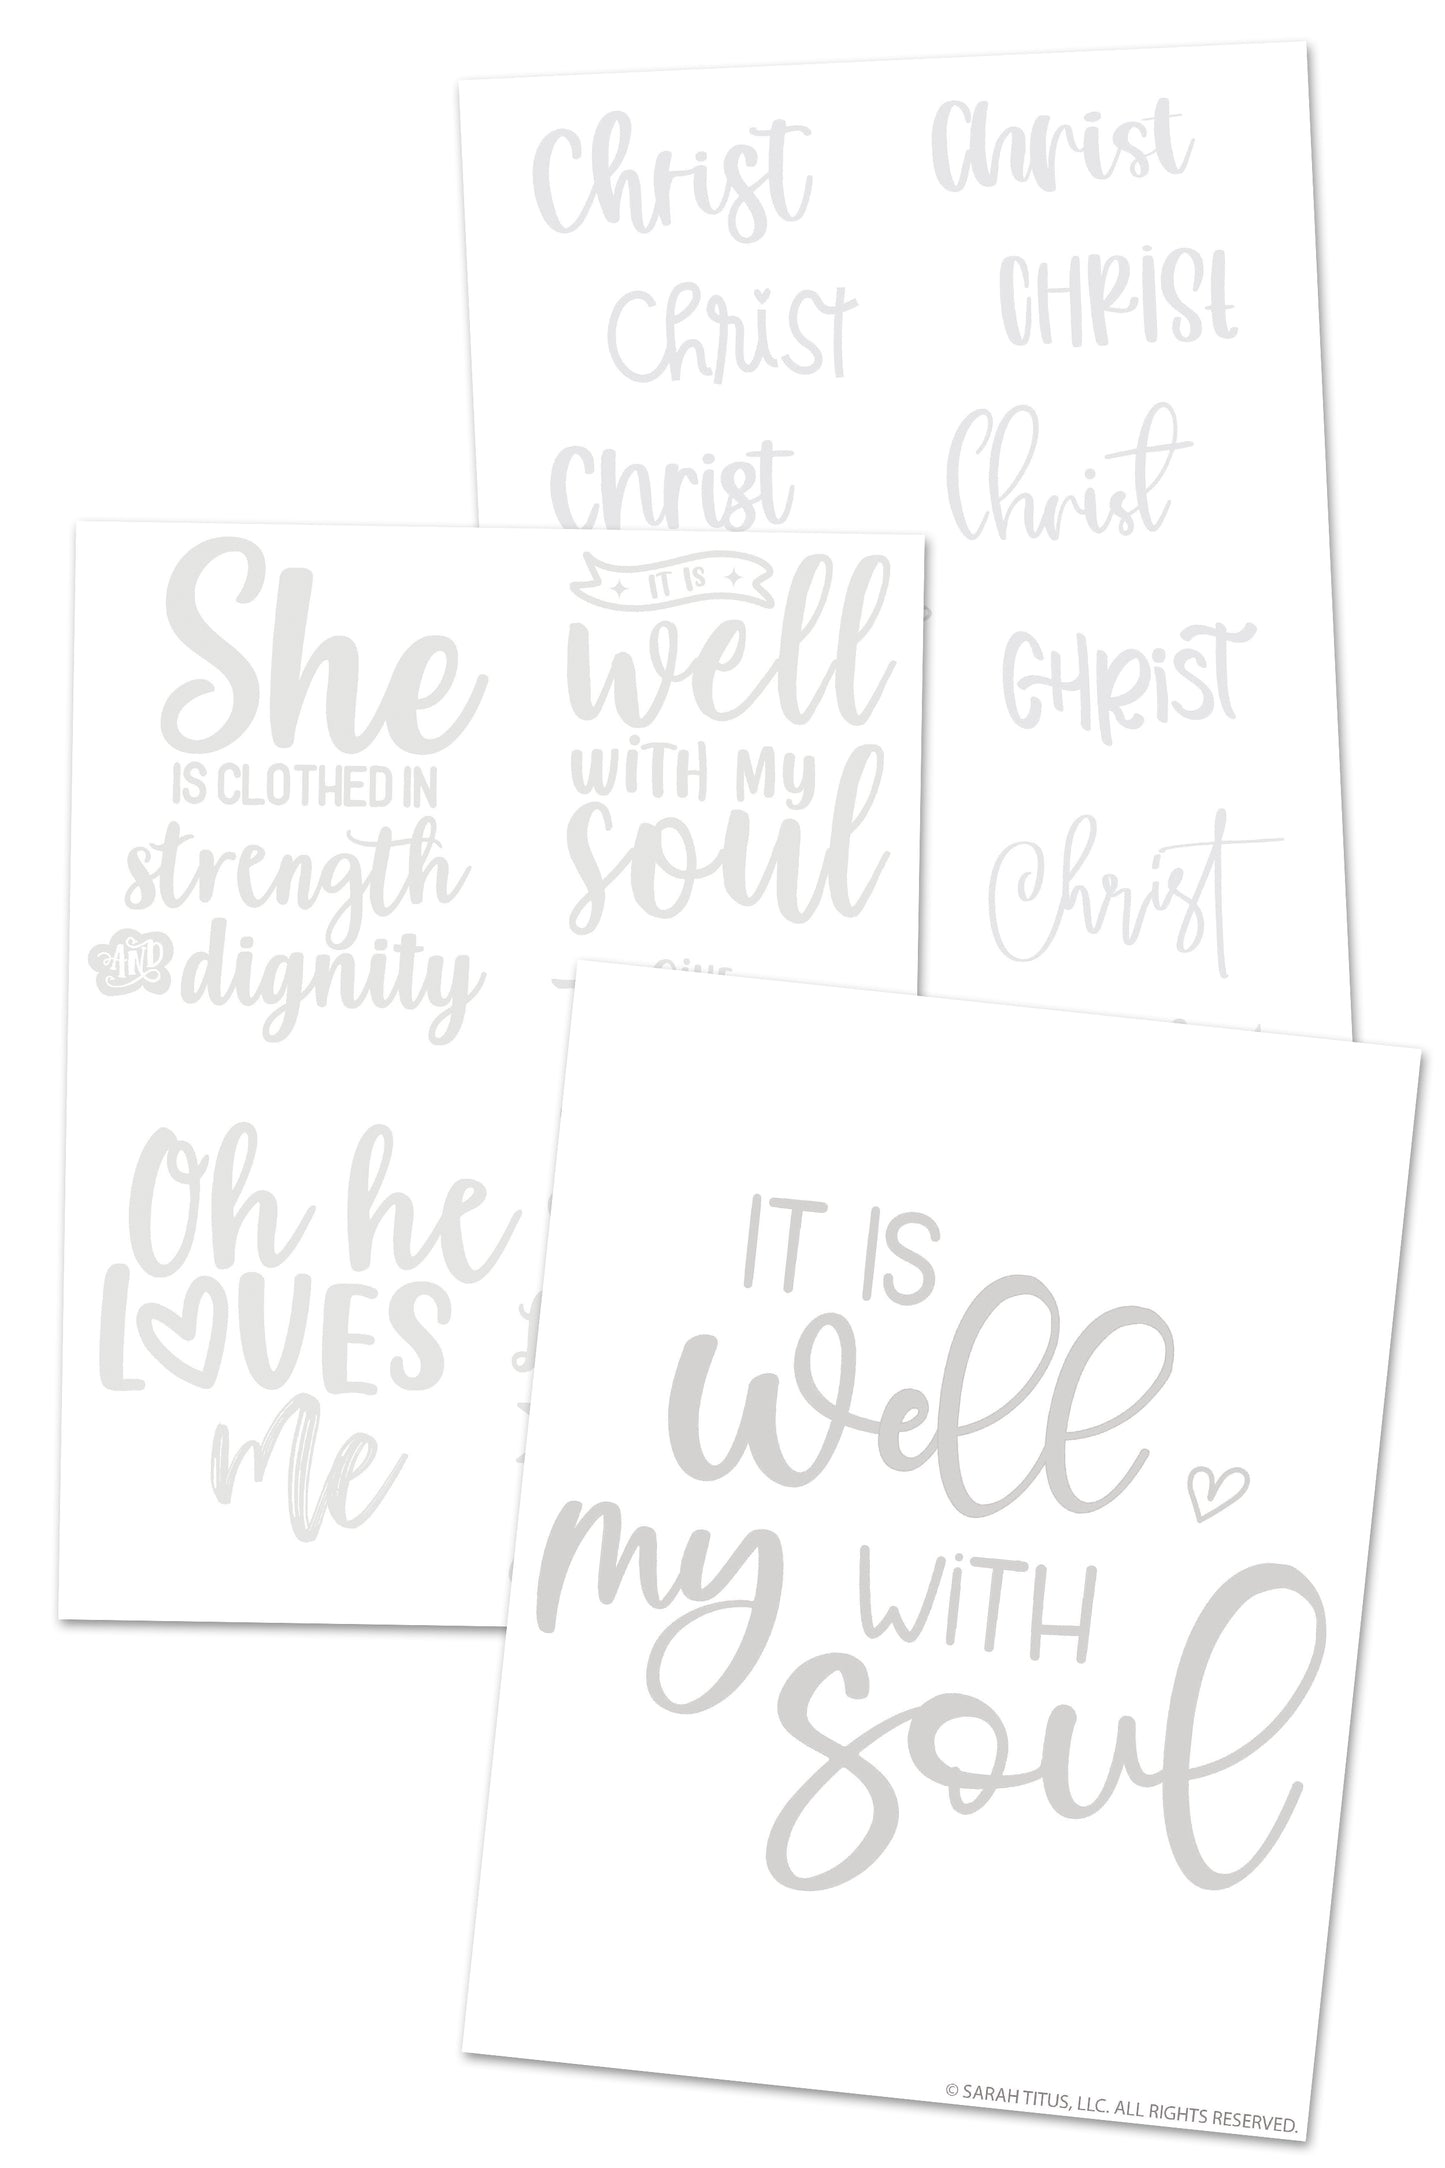 Christ
Christ
Christ
CHRIST
Christ
Christ
CHRIST
Christ
She
IS CLOTHED IN
strength
AND dignity
IT IS
well
WITH MY
soul
Oh he
LOVES
me
IT IS
well
my WITH
soul
© SARAH TITUS, LLC. ALL RIGHTS RESERVED.